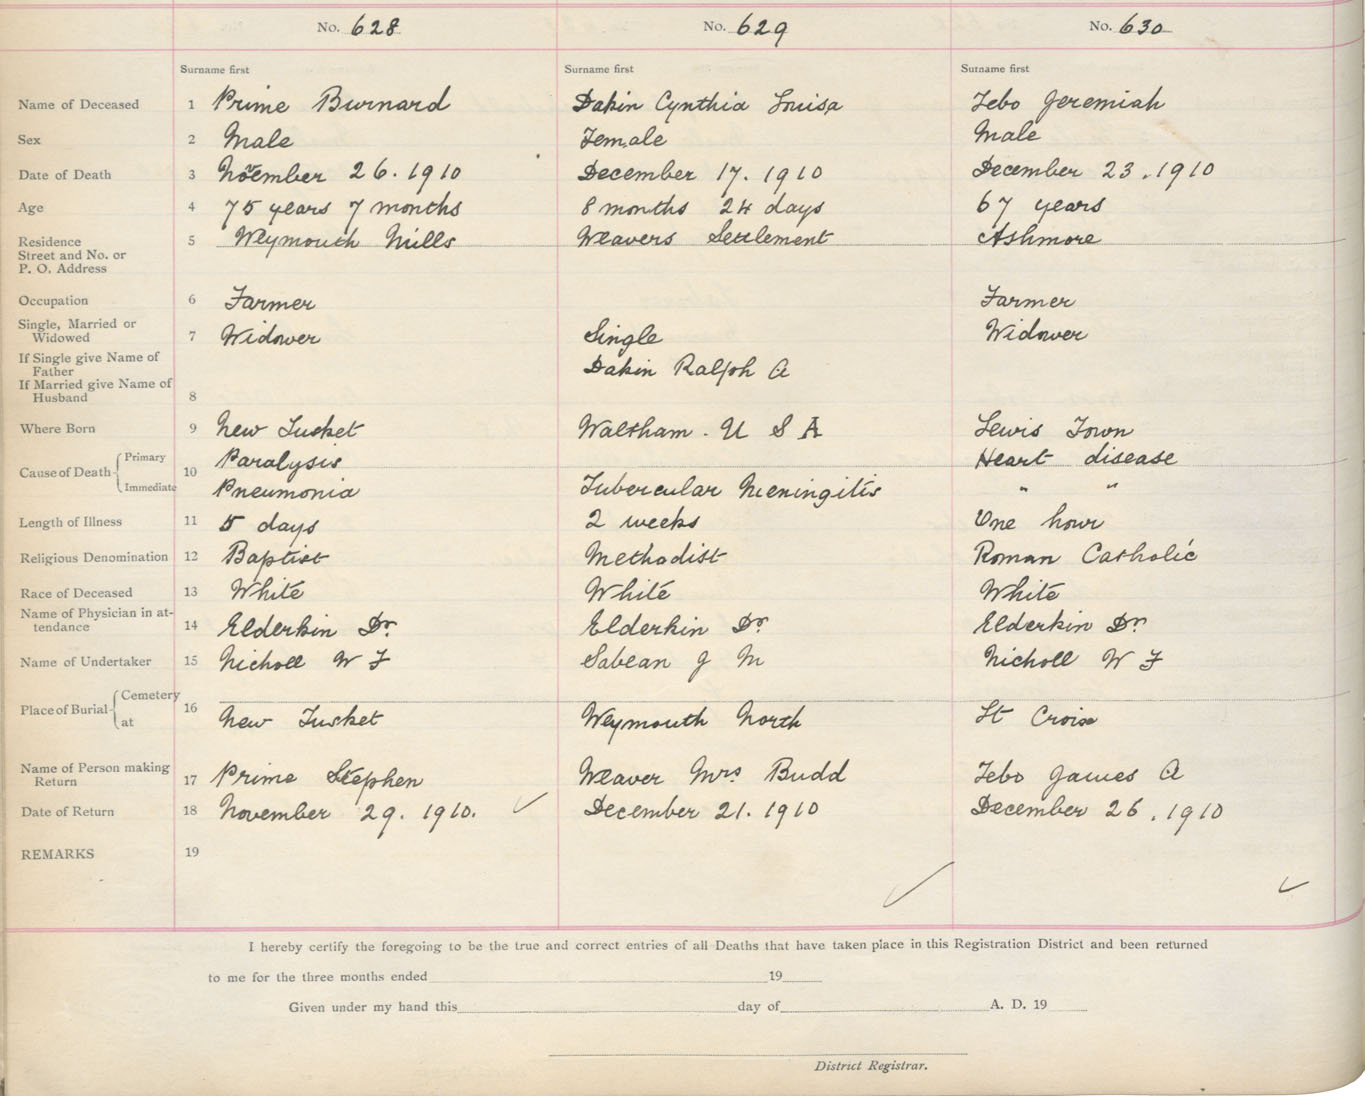 No. 628 No. 629 No. 630
Surname first Surname first Surname first
Name of Deceased 1 Prime Burnard Dakin Cynthia Louisa Tebo Jeremiah
Sex 2 Male Female Male
Date of Death 3 November 26. 1910 December 17. 1910 December 23. 1910
Age 4 75 years 7 months 8 months 24 days 67 years
Residence 5 Weymouth Mills Weavers Settlement Ashmore
Street and No. or
P. O. Address
Occupation 6 Farmer Farmer
Single, Married or
Widowed 7 Widower Single Widower
If Single give Name of
Father Dakin Ralph A
If Married give Name of
Husband 8
Where Born 9 New Tusket Waltham. U S A Lewis Town
Cause of Death 10 Primary Paralysis Heart disease
Immediate Pneumonia Tubercular Meningitis " "
Length of Illness 11 5 days 2 weeks One hour
Religious Denomination 12 Baptist Methodist Roman Catholic
Race of Deceased 13 White White White
Name of Physician in at-
tendance 14 Elderkin Dr. Elderkin Dr. Elderkin Dr.
Name of Undertaker 15 Nicholl W F Sabean J M Nicholl W F
Place of Burial 16 Cemetery
at New Tusket Weymouth North St Croix
Name of Person making
Return 17 Prime Stephen Weaver Mrs Budd Tebo James A
Date of Return 18 November 29. 1910. December 21. 1910 December 26. 1910
REMARKS 19
I hereby certify the foregoing to be the true and correct entries of all Deaths that have taken place in this Registration District and been returned
to me for the three months ended 19
Given under my hand this day of A. D. 19
District Registrar.